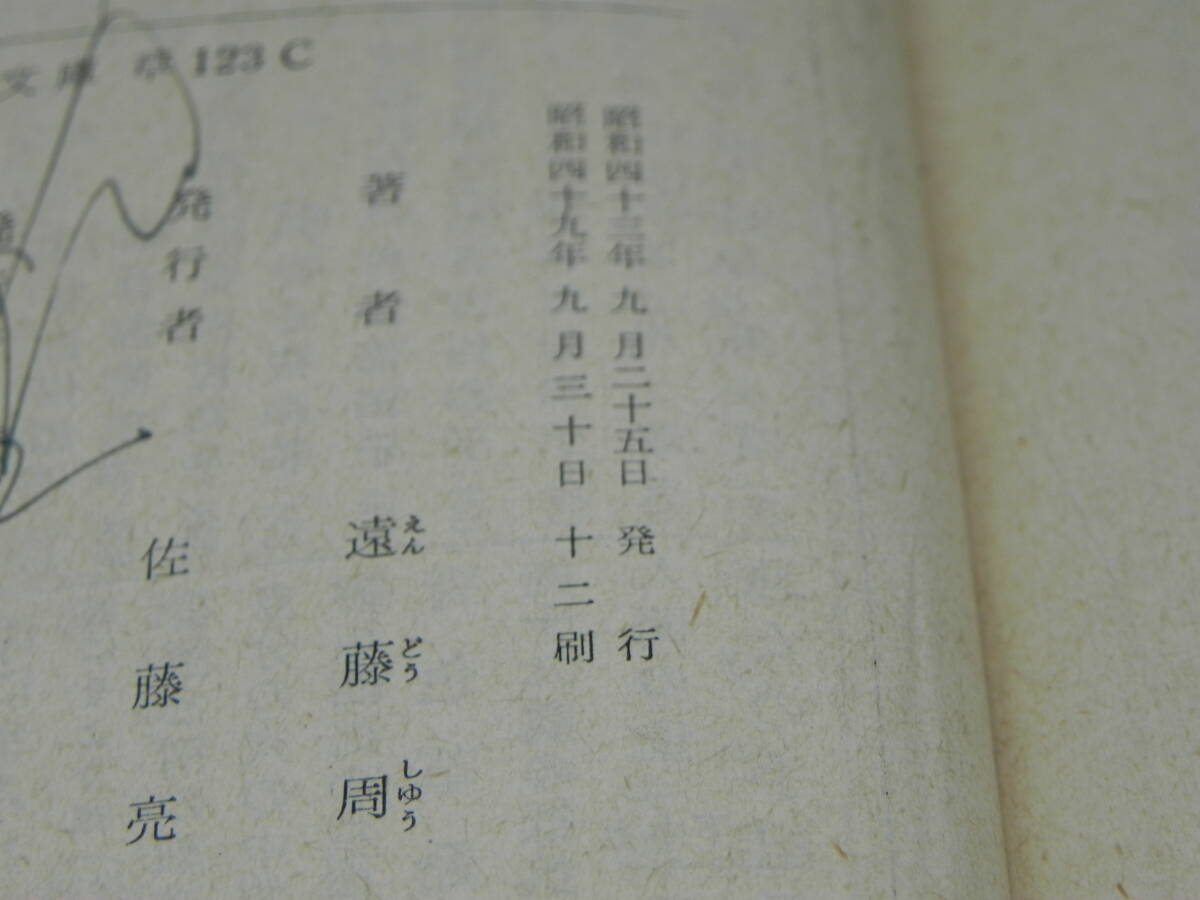 文庫 草123C
昭和四十三年九月二十五日発行
昭和四十九年九月三十日十二刷
著者 遠藤周
えんどうしゆう
発行者 佐藤亮
発